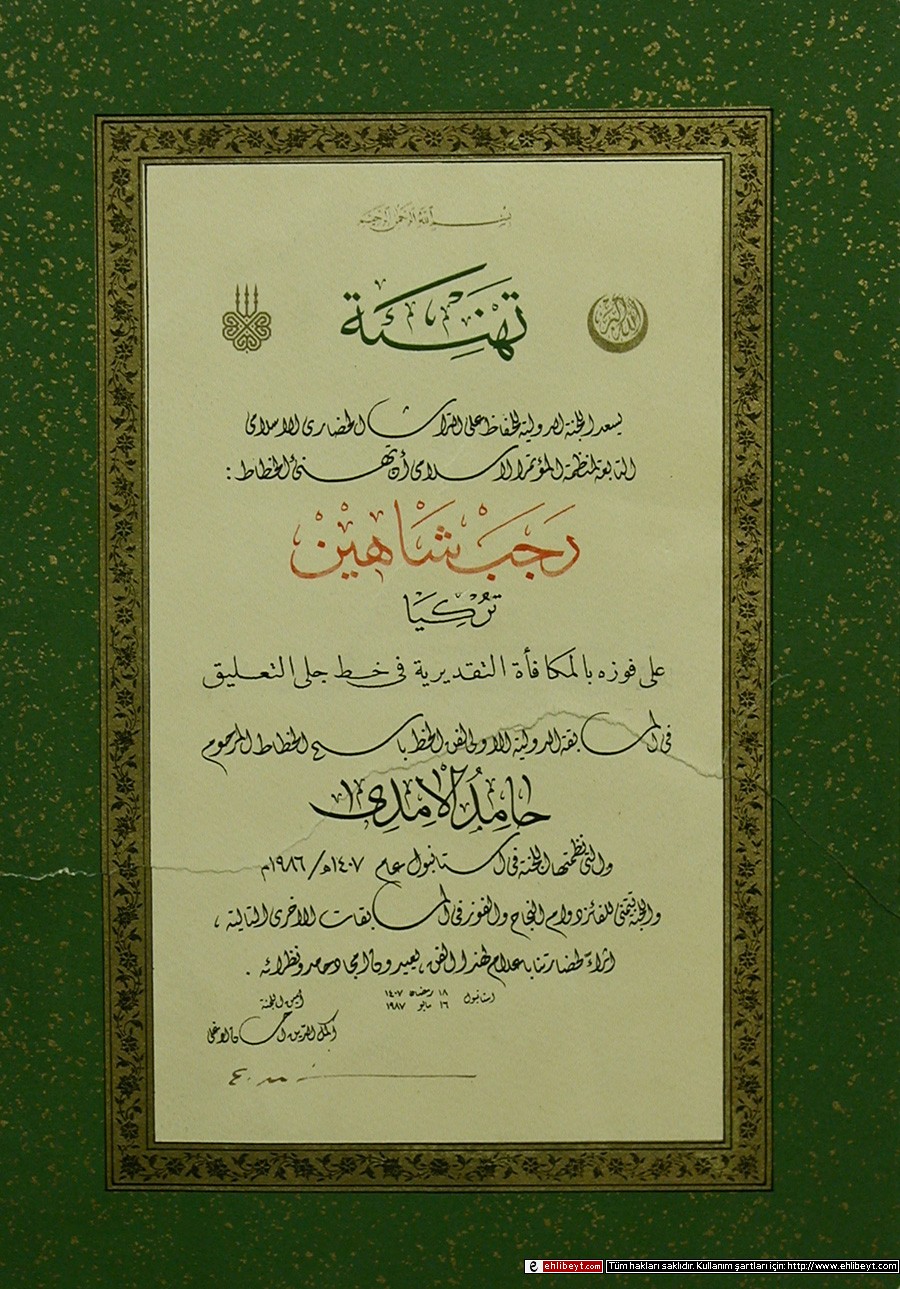 بسم الله الرحمن الرحيم
تهنئة
الله أكبر
يسعد اللجنة الدولية للحفاظ على التراث الحضاري الاسلامي
التابعة لمنظمة المؤتمر الاسلامي أن تهنئ الخطاط :
رَجَبْ شَاهِينْ
تُرْكِيَا
على فوزه بالمكافأة التقديرية في خط جلي التعليق
في المسابقة الدولية الاولى لفن الخط باسم الخطاط المرحوم
حامِدُ الآمِدِي
والتي نظمتها اللجنة في استانبول عام ١٤٠٧هـ/١٩٨٦م
واللجنة تتمنى للفائز دوام النجاح والفوز في المسابقات الاخرى التالية ،
اثراءً لحضارتنا باعلام لهذا الفن ، يعيدون امجاد حامد ونظرائه .
استانبول ١٨ رمضان ١٤٠٧
١٦ مايو ١٩٨٧
أمين اللجنة
اكمل الدين احسان اوغلى
ehlibeyt.com Tüm hakları saklıdır. Kullanım şartları için: http://www.ehlibeyt.com